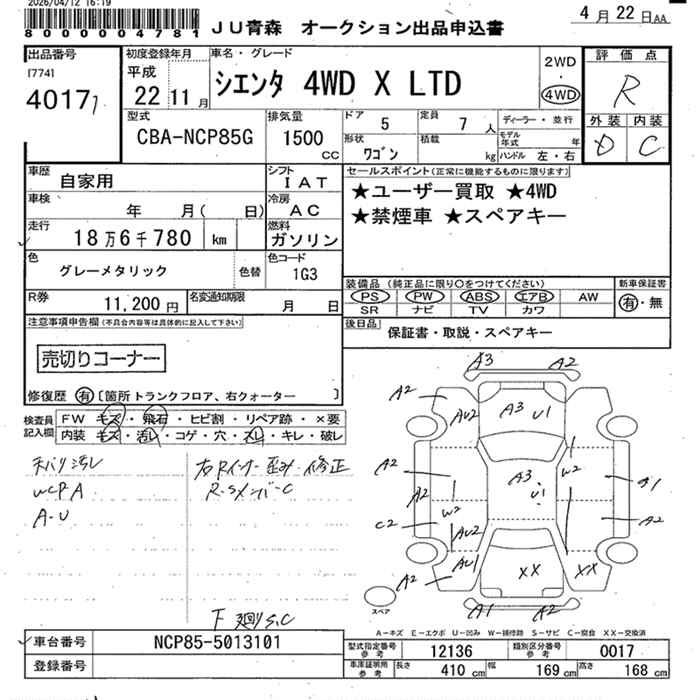 2026/04/12 16:19
8 0 0 0 0 0 4 7 8 1
JU青森 オークション出品申込書
4 月 22 日AA
出品番号
[774]
4017
初度登録年月
平成
22 11 月
車名・グレード
シエンタ 4WD X LTD
2WD
・
4WD
評価点
R
外装 内装
D C
型式
CBA-NCP85G
排気量
1500
CC
ドア 5
定員 7 人
形状 ワゴン
積載 kg
ディーラー・並行
モデル年式 年
ハンドル 左・右
車歴
自家用
シフト
I AT
車検
年 月( 日)
冷房
A C
走行
18 万 6 千 780 km
燃料
ガソリン
色
グレーメタリック
色替
色コード
1G3
R券
11,200 円
名変通知期限
月 日
セールスポイント(正常に機能するものに限ります)
★ユーザー買取 ★4WD
★禁煙車 ★スペアキー
装備品 (純正品に限り○をつけてください)
PS PW ABS エアB AW
SR ナビ TV カワ
新車保証書
有・無
後日品
保証書・取説・スペアキー
注意事項申告欄(不具合内容等は具体的に記入して下さい)
売切りコーナー
修復歴 有 [箇所 トランクフロア、右クォーター ]
検査員
記入欄
FW キズ・飛石・ヒビ割・リペア跡・×要
内装 キズ・汚レ・コゲ・穴・スレ・キレ・破レ
WCPA
A-U
右Rインナー歪み・修正
R.Sメンバーc
F 廻りS,C
A3 A2
A2 AU2 A3 U1
A2 A3 U1 W2 A1
A2 W2 A2
C2 AU2
A2 AU1 XX XX
スペア
A1 A2
A―キズ E―エクボ U―凹み W―補修跡 S―サビ C―腐食 XX―交換済
車台番号
NCP85-5013101
登録番号
型式指定番号
参考
12136
類別区分番号
参考
0017
車庫証明用
参考
長さ 410 cm 幅 169 cm 高さ 168 cm